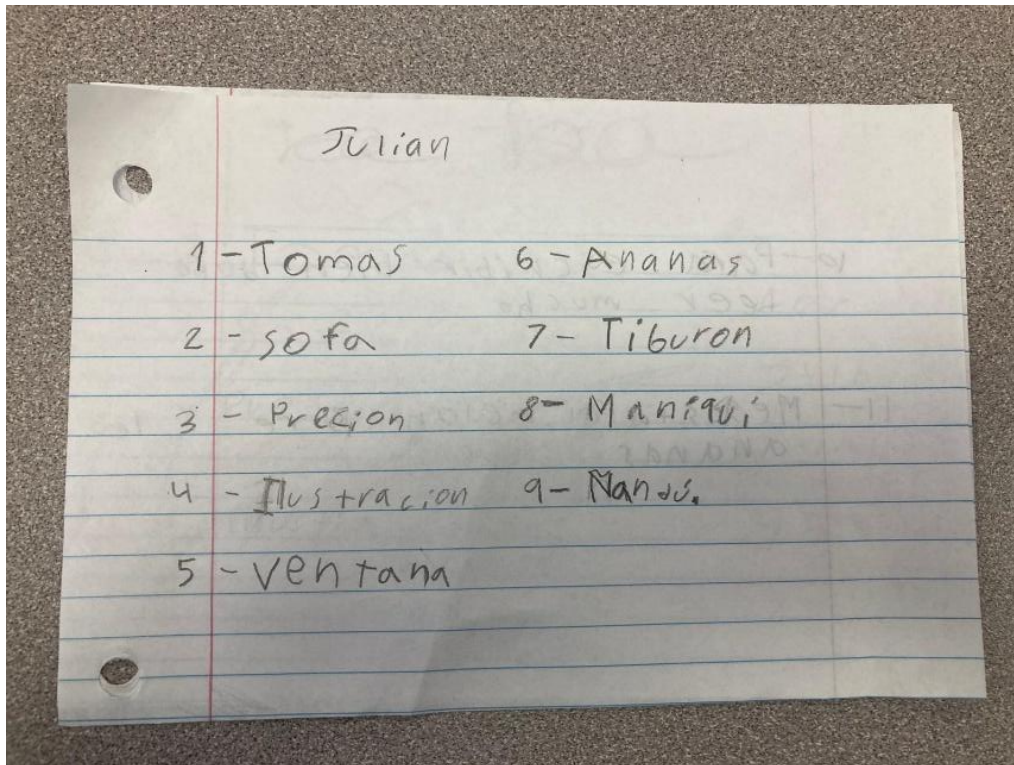 Julian
1 - Tomas
2 - sofa
3 - Precion
4 - Ilustracion
5 - ventana
6 - Ananas
7 - Tiburon
8 - Maniqui
9 - Nandú.